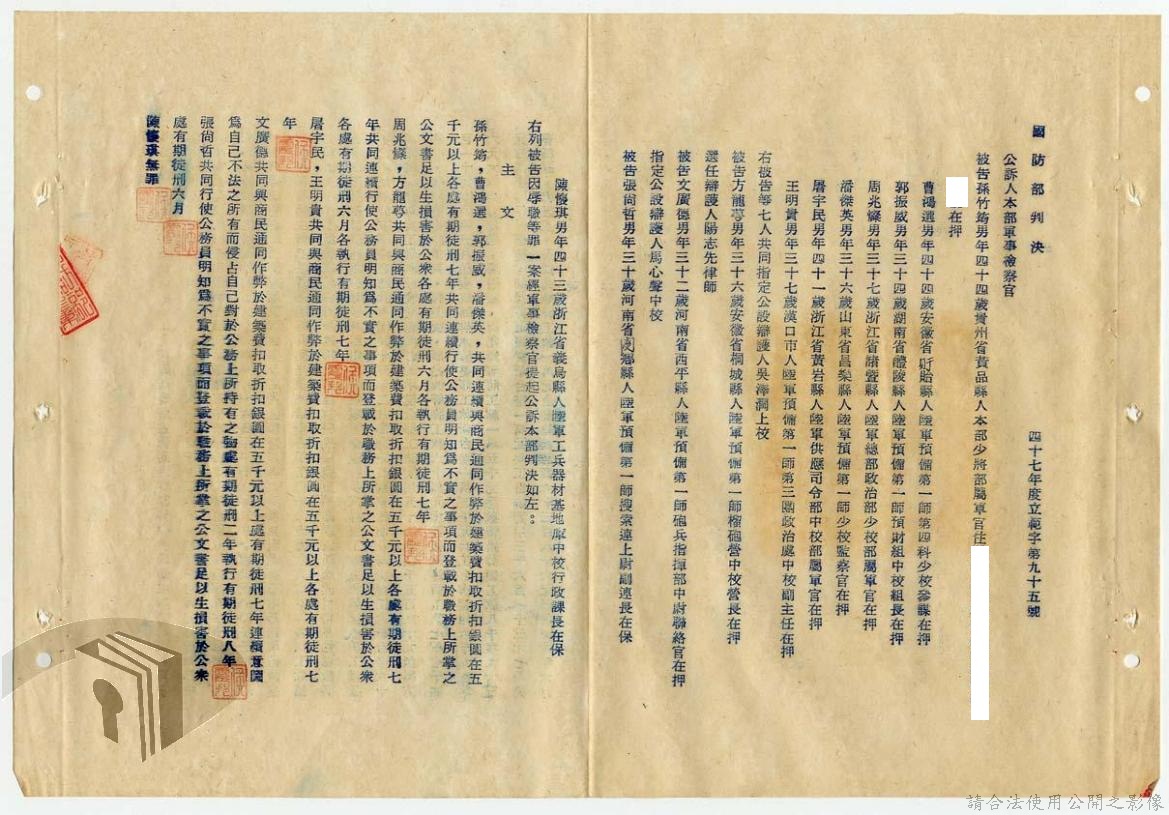 國防部判決
四十七年度立範字第九十五號
公訴人本部軍事檢察官
被告孫竹筠男年四十四歲貴州省黃品縣人本部少將部屬軍官住
在押
曹鴻選男年四十四歲安徽省盱眙縣人陸軍預備第一師第四科少校參謀在押
郭振威男年三十四歲湖南省醴陵縣人陸軍預備第一師預財組中校組長在押
周兆燦男年三十七歲浙江省諸暨縣人陸軍總部政治部少校部屬軍官在押
潘傑英男年三十六歲山東省昌樂縣人陸軍預備第一師少校監察官在押
屠宇民男年四十一歲浙江省黃岩縣人陸軍供應司令部中校部屬軍官在押
王明貴男年三十七歲漢口市人陸軍預備第一師第三團政治處中校副主任在押
右被告等七人共同指定公設辯護人吳澤潤上校
被告方龍蓴男年三十六歲安徽省桐城縣人陸軍預備第一師榴砲營中校營長在押
選任辯護人陽志先律師
被告文廣德男年三十二歲河南省西平縣人陸軍預備第一師砲兵指揮部中尉聯絡官在押
指定公設辯護人馬心聲中校
被告張尚哲男年三十歲河南省閿鄉縣人陸軍預備第一師搜索連上尉副連長在保
陳懷琪男年四十三歲浙江省義烏縣人陸軍工兵器材基地庫中校行政課長在保
右列被告因辱職等罪一案經軍事檢察官提起公訴本部判決如左：
主文
孫竹筠，曹鴻選，郭振威，潘傑英，共同連續與商民通同作弊於建築費扣取折扣銀圓在五
千元以上各處有期徒刑七年共同連續行使公務員明知為不實之事項而登載於職務上所掌之
公文書足以生損害於公衆各處有期徒刑六月各執行有期徒刑七年
周兆燦，方龍蓴共同與商民通同作弊於建築費扣取折扣銀圓在五千元以上各處有期徒刑七
年共同連續行使公務員明知為不實之事項而登載於職務上所掌之公文書足以生損害於公衆
各處有期徒刑六月各執行有期徒刑七年
屠宇民，王明貴共同與商民通同作弊於建築費扣取折扣銀圓在五千元以上各處有期徒刑七
年
文廣德共同與商民通同作弊於建築費扣取折扣銀圓在五千元以上處有期徒刑七年連續意圖
為自己不法之所有而侵占自己對於公務上所持有之物處有期徒刑二年執行有期徒刑八年
張尚哲共同行使公務員明知為不實之事項而登載於職務上所掌之公文書足以生損害於公衆
處有期徒刑六月
陳懷琪無罪
請合法使用公開之影像